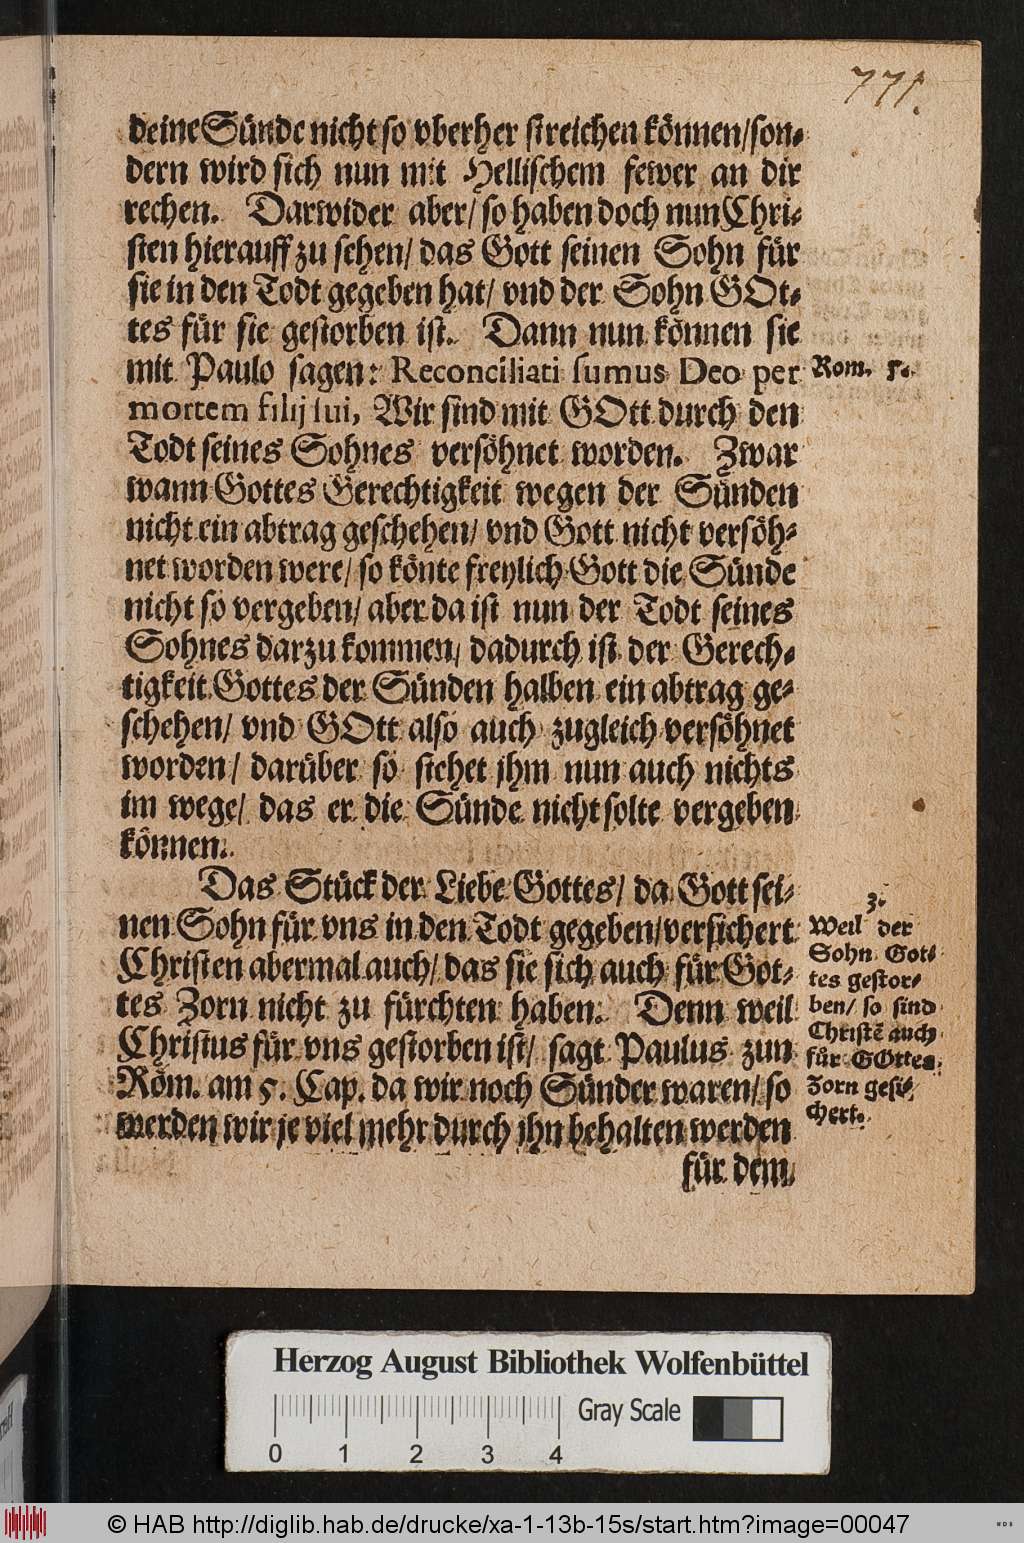 771.
deine Sünde nicht so vberher streichen können/son-
dern wird sich nun mit Hellischem fewer an dir
rechen. Darwider aber/ so haben doch nun Chri-
sten hierauff zu sehen/ das Gott seinen Sohn für
sie in den Todt gegeben hat/ vnd der Sohn GOt-
tes für sie gestorben ist. Dann nun können sie
mit Paulo sagen: Reconciliati sumus Deo per
mortem filij sui, Wir sind mit GOtt durch den
Todt seines Sohnes versöhnet worden. Zwar
wann Gottes Gerechtigkeit wegen der Sünden
nicht ein abtrag geschehen/ vnd Gott nicht versöh-
net worden were/ so könte freylich Gott die Sünde
nicht so vergeben/ aber da ist nun der Todt seines
Sohnes darzu kommen/ dadurch ist der Gerech-
tigkeit Gottes der Sünden halben ein abtrag ge-
schehen/ vnd GOtt also auch zugleich versöhnet
worden/ darüber so stehet jhm nun auch nichts
im wege/ das er die Sünde nicht solte vergeben
können.
Rom. 5.
Das Stück der Liebe Gottes/ da Gott sei-
nen Sohn für vns in den Todt gegeben/versichert
Christen abermal auch/ das sie sich auch für Got-
tes Zorn nicht zu fürchten haben. Denn weil
Christus für vns gestorben ist/ sagt Paulus zun
Röm. am 5. Cap. da wir noch Sünder waren/ so
werden wir je viel mehr durch jhn behalten werden
für dem
3.
Weil der
Sohn Got-
tes gestor-
ben/ so sind
Christē auch
für GOttes
Zorn gesi-
chert.
Herzog August Bibliothek Wolfenbüttel
Gray Scale
0 1 2 3 4
© HAB http://diglib.hab.de/drucke/xa-1-13b-15s/start.htm?image=00047